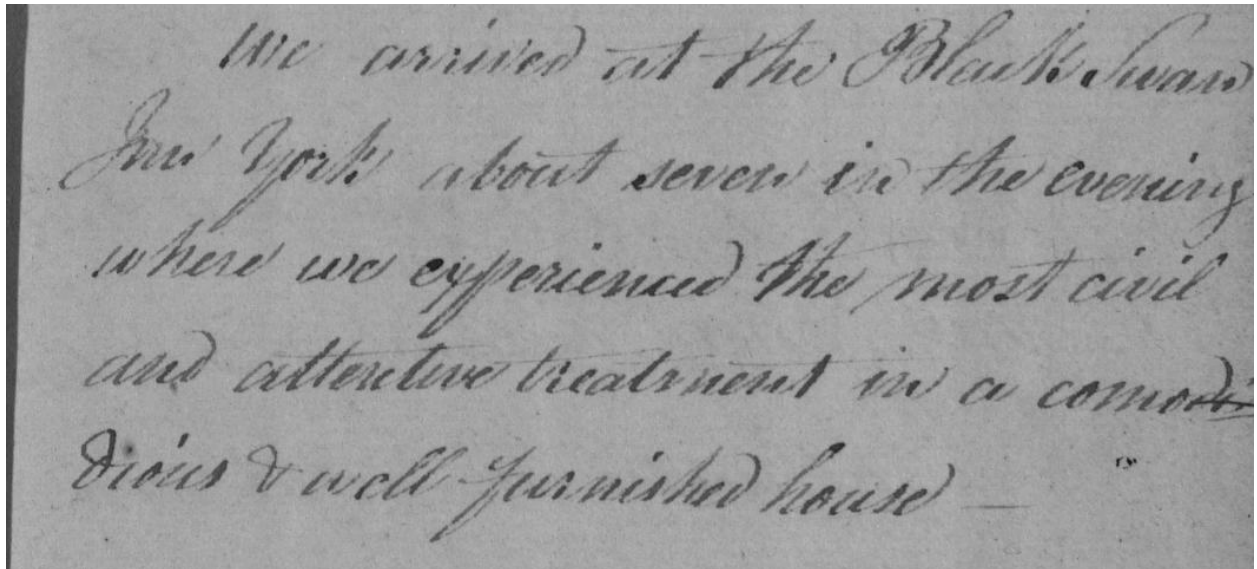 We arrived at the Black Swan
Inn York about seven in the evening
where we experienced the most civil
and attentive treatment in a como
dious & well furnished house —